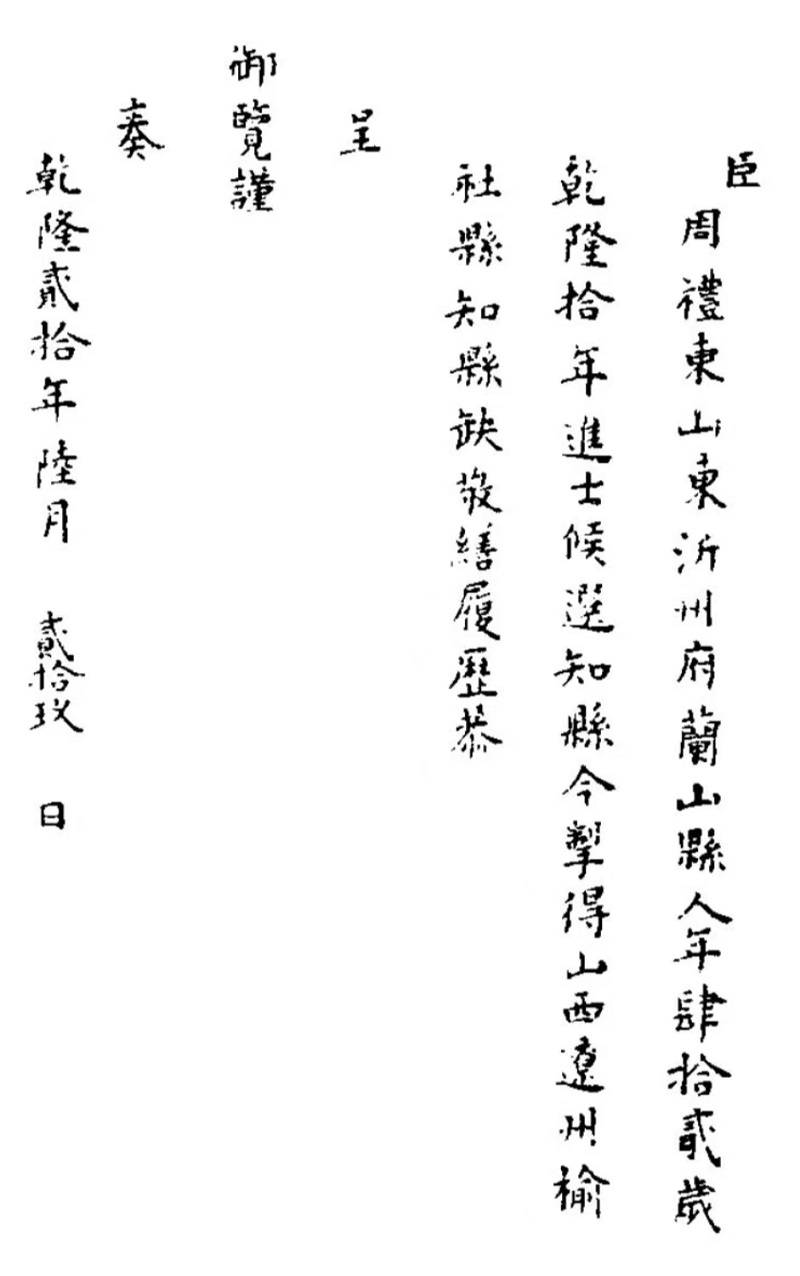 臣周禮東山東沂州府蘭山縣人年肆拾貳歲
乾隆拾年進士候選知縣今掣得山西遼州榆
社縣知縣缺敬繕履歷恭
呈
御覽謹
奏
乾隆貳拾年陸月 貳拾玖 日